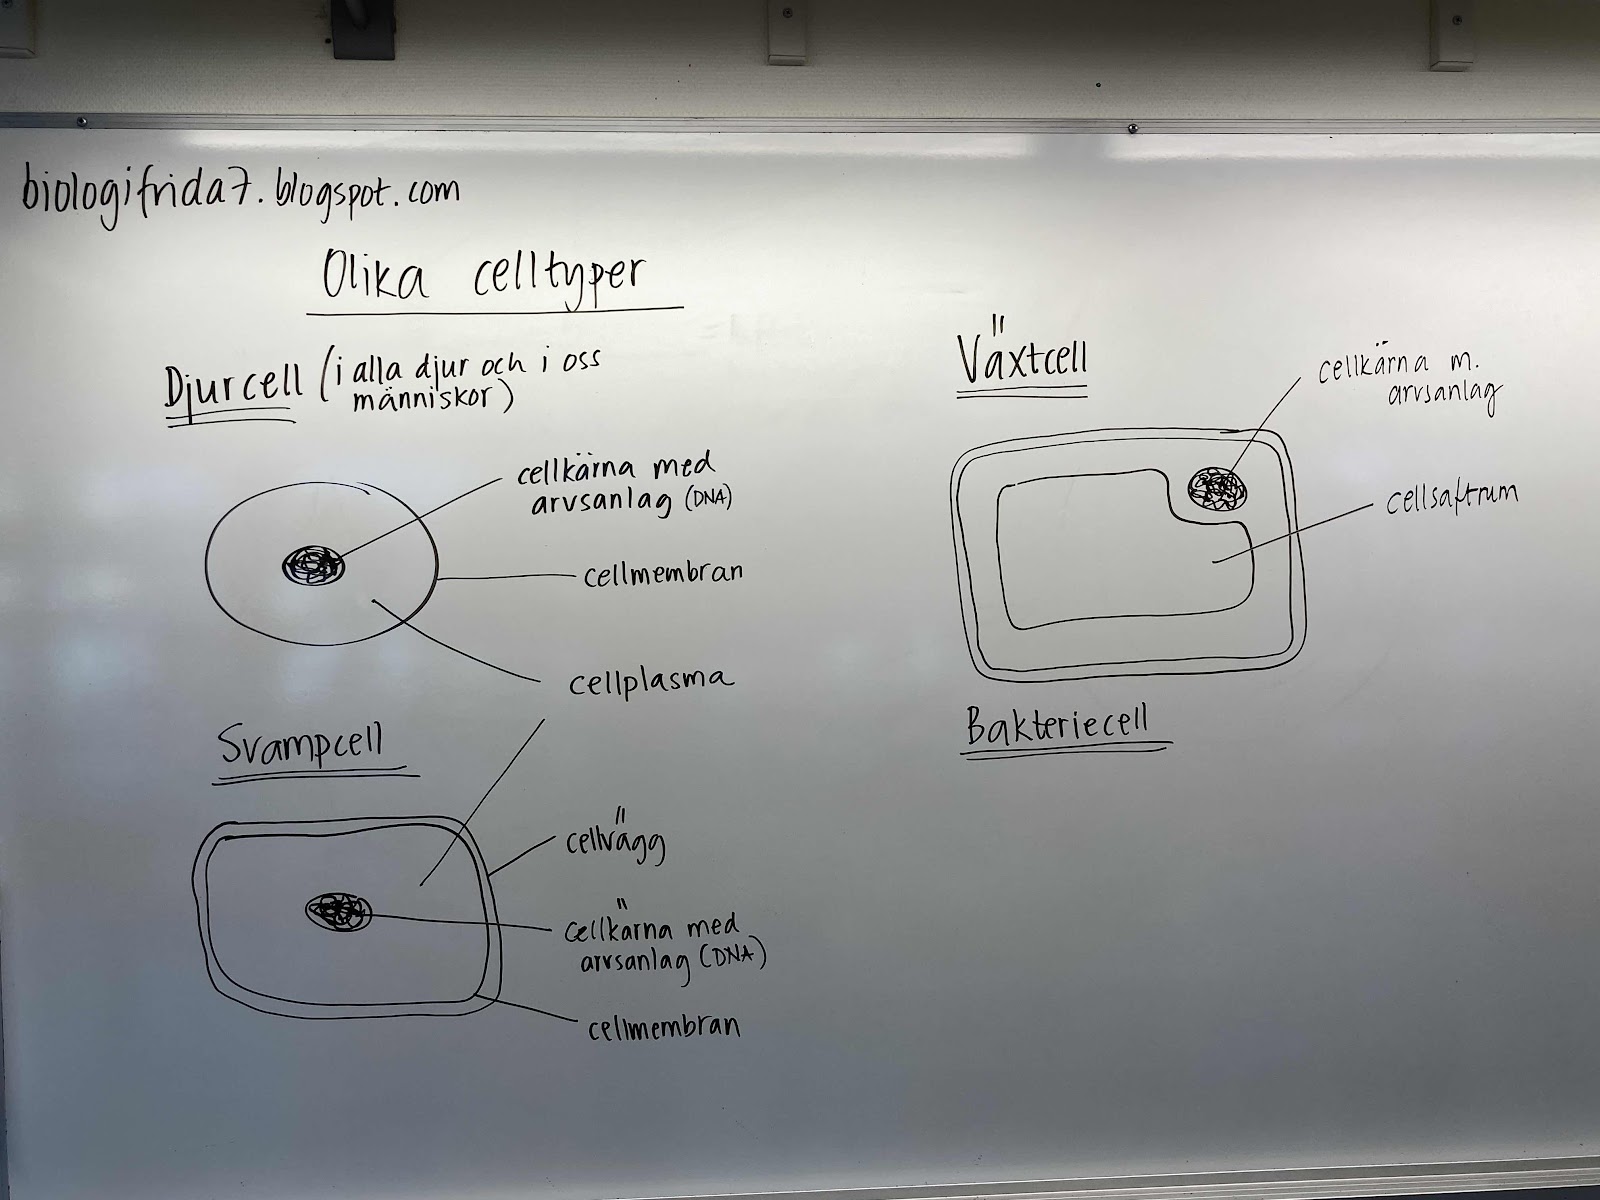 biologifrida7.blogspot.com
Olika celltyper
Djurcell (i alla djur och i oss
människor)
cellkärna med
arvsanlag (DNA)
cellmembran
cellplasma
Svampcell
cellvägg
cellkärna med
arvsanlag (DNA)
cellmembran
Växtcell
cellkärna m.
arvsanlag
cellsaftrum
Bakteriecell